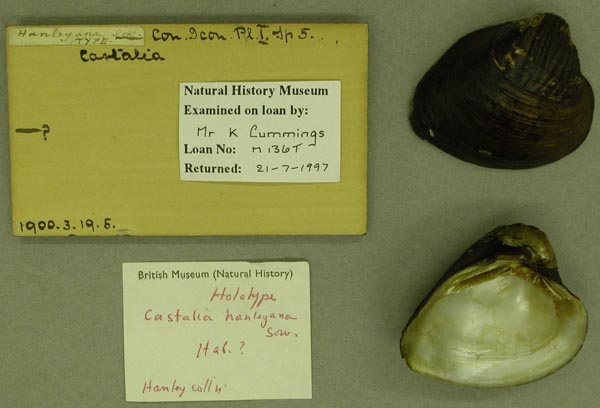 Hanleyana Con. Icon. Pl. I. Sp 5.
TYPE
Castalia
—?
Natural History Museum
Examined on loan by:
Mr K Cummings
Loan No: M136T
Returned: 21-7-1997
1900.3.19.5.
British Museum (Natural History)
Holotype
Castalia hanleyana
Sow.
Hab.?
Hanley coll'n